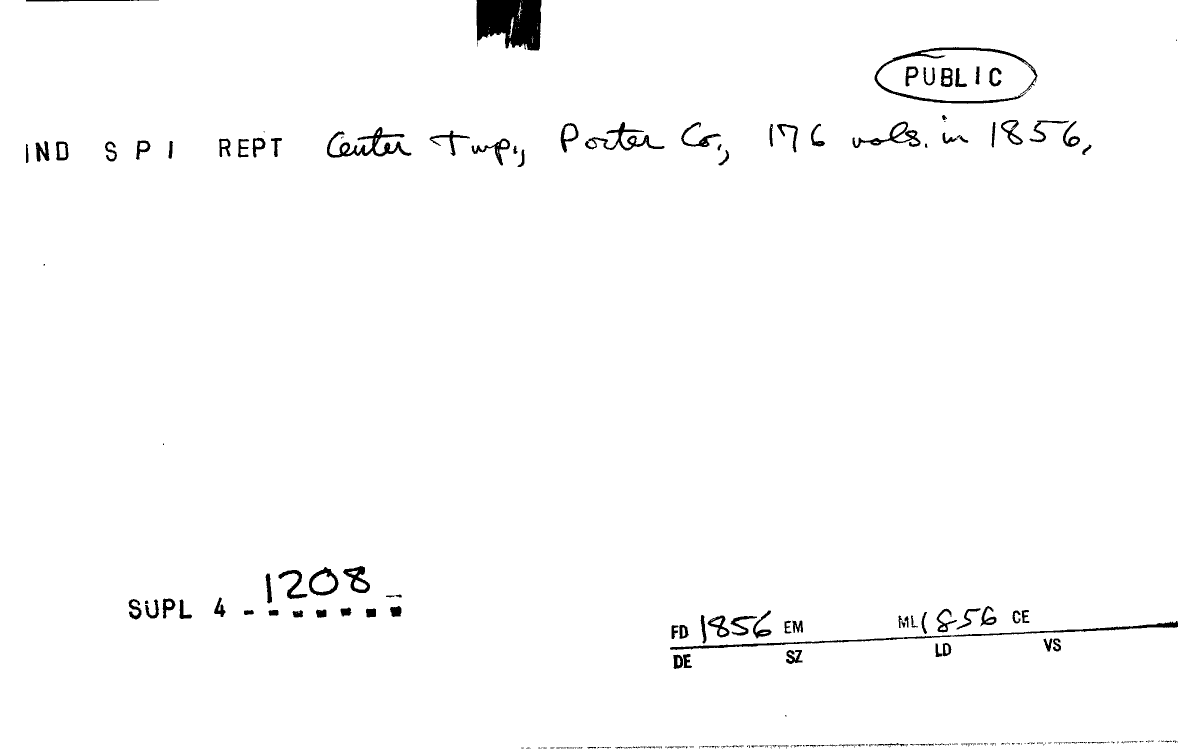 PUBLIC
IND S P I REPT Center Twp., Porter Co., 176 vols. in 1856,
SUPL 4 - 1208 -
FD 1856 EM ML 1856 CE
DE SZ LD VS